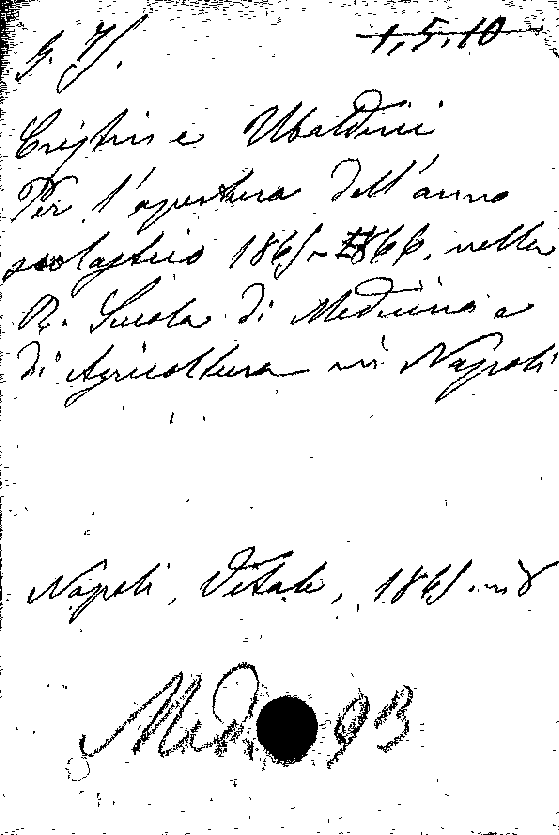 1,5,10
Per l'apertura dell'anno
scolastico 1865-1866, nella
R. Scuola di Medicina e
di Agricoltura in Napoli
Napoli, Vitale, 1865. in 8
Med. 93